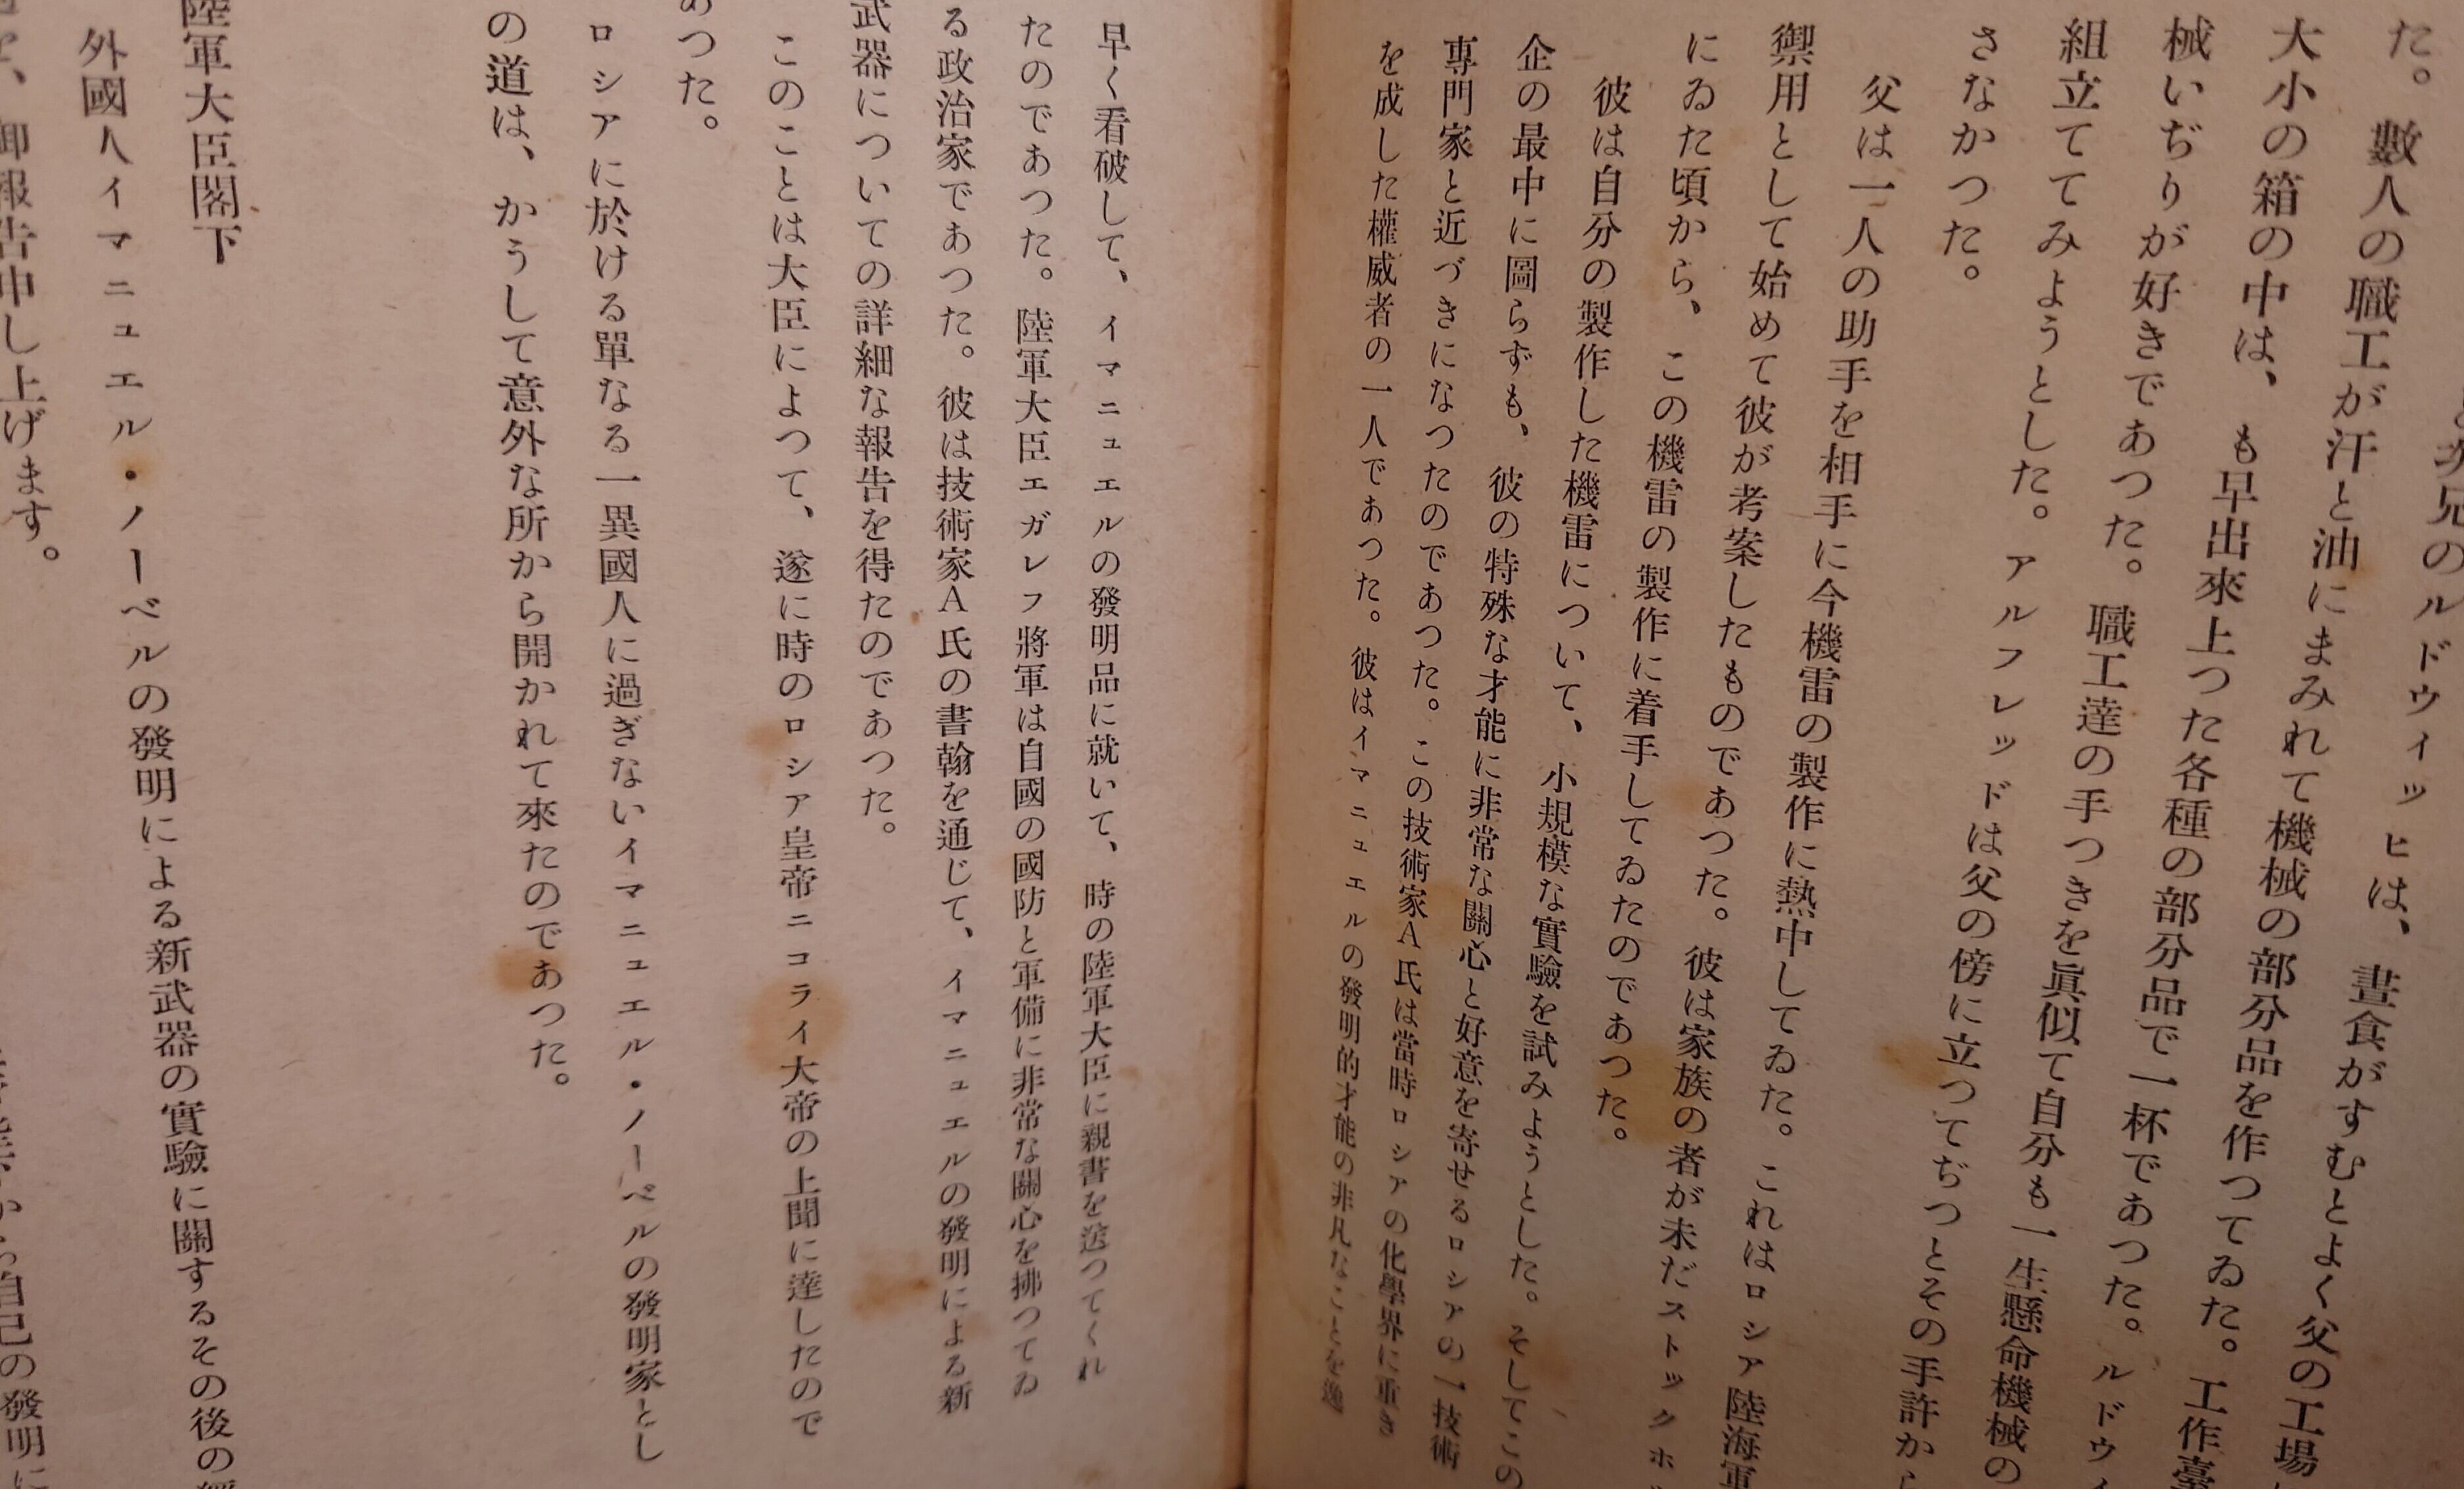 次兄のルドウィッヒは、晝食がすむとよく父の工場
た。數人の職工が汗と油にまみれて機械の部分品を作つてゐた。工作臺
大小の箱の中は、も早出來上つた各種の部分品で一杯であつた。ルドウィ
械いぢりが好きであつた。職工達の手つきを眞似て自分も一生懸命機械の
組立ててみようとした。アルフレッドは父の傍に立つてぢつとその手許から
さなかつた。
父は一人の助手を相手に今機雷の製作に熱中してゐた。これはロシア陸海軍
禦用として始めて彼が考案したものであつた。彼は家族の者が未だストックホ
にゐた頃から、この機雷の製作に着手してゐたのであつた。
彼は自分の製作した機雷について、小規模な實驗を試みようとした。そしてこの
企の最中に圖らずも、彼の特殊な才能に非常な關心と好意を寄せるロシアの一技術
專門家と近づきになつたのであつた。この技術家A氏は當時ロシアの化學界に重き
を成した權威者の一人であつた。彼はイマニュエルの發明的才能の非凡なことを逸
早く看破して、イマニュエルの發明品に就いて、時の陸軍大臣に親書を送つてくれ
たのであつた。陸軍大臣エガレフ將軍は自國の國防と軍備に非常な關心を拂つてゐ
る政治家であつた。彼は技術家A氏の書翰を通じて、イマニュエルの發明による新
武器についての詳細な報告を得たのであつた。
このことは大臣によつて、遂に時のロシア皇帝ニコライ大帝の上聞に達したので
あつた。
ロシアに於ける單なる一異國人に過ぎないイマニュエル・ノーベルの發明家とし
の道は、かうして意外な所から開かれて來たのであつた。
陸軍大臣閣下
外國人イマニュエル・ノーベルの發明による新武器の實驗に關するその後の
御報告申し上げます。
から自己の發明に